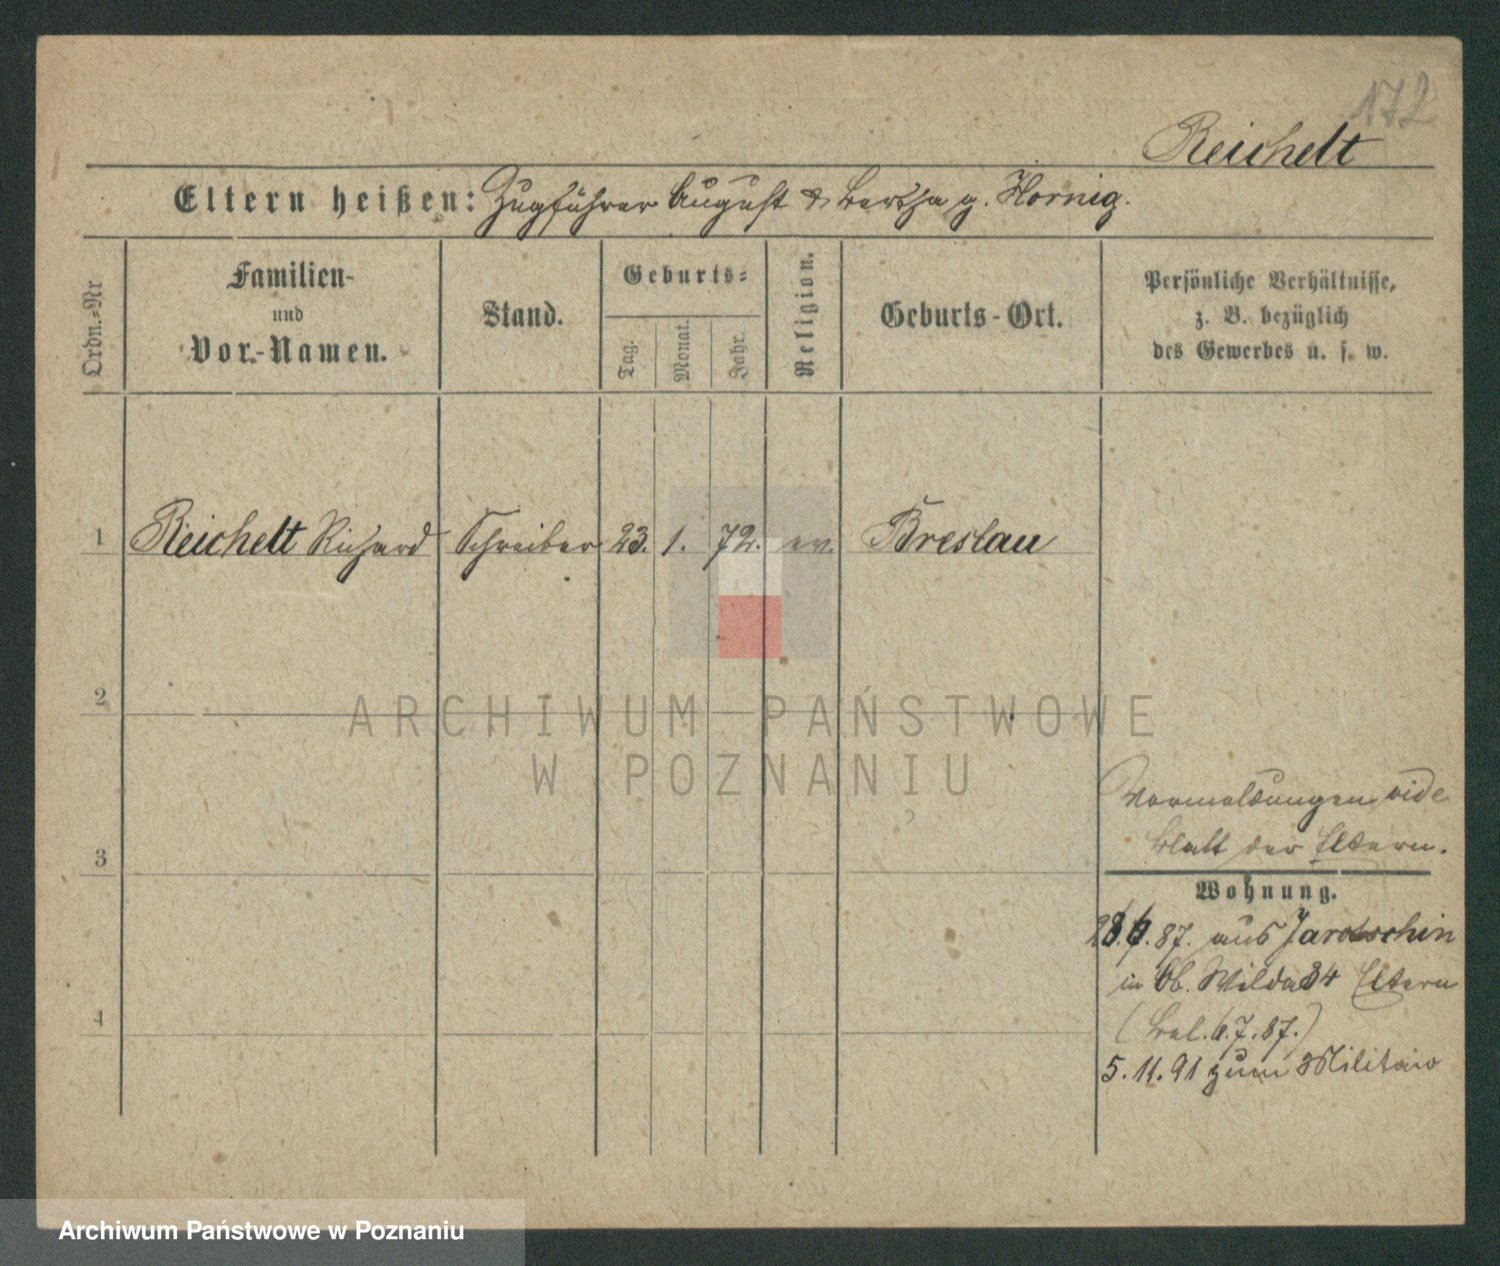 172
Reichelt
Eltern heißen: Zugführer August & Bertha g. Hornig.
Ordn.-Nr
Familien-
und
Vor-Namen.
Stand.
Geburts-
Tag.
Monat.
Jahr.
Religion.
Geburts-Ort.
Persönliche Verhältnisse,
z. B. bezüglich
des Gewerbes u. s. w.
1 Reichelt Richard Schreiber 23. 1. 72. ev. Breslau
2
ARCHIWUM PAŃSTWOWE
W POZNANIU
Vormeldungen vide
Blatt der Eltern.
3
Wohnung.
28.6.87. aus Jarotschin
in Ob. Wilda 34 Eltern
4
(Bel. 6.7.87.)
5.11.91 zum Militair
Archiwum Państwowe w Poznaniu